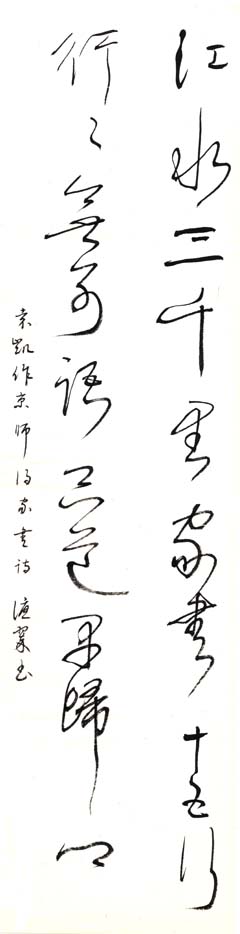 江水三千里家書十五行
行〻無別語只道早歸鄉
袁凱作京師得家書詩